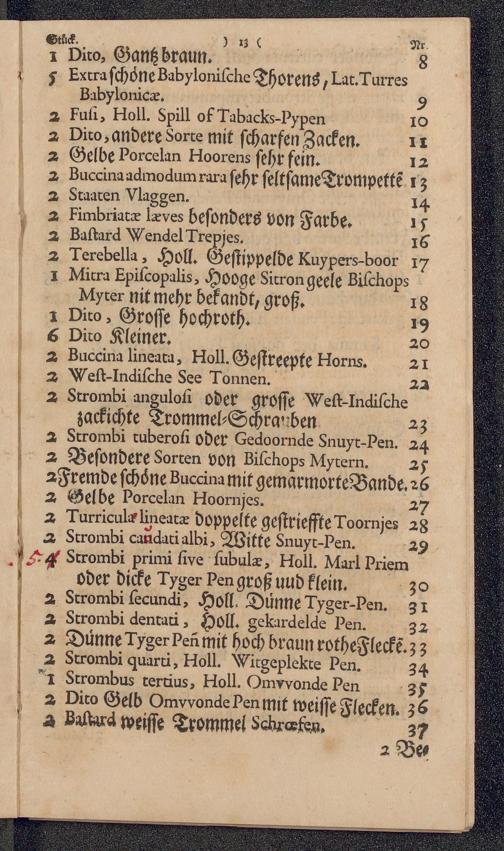 Stück. ) 13 ( Nr.
1 Dito, Gantz braun. 8
5 Extra schöne Babylonische Thorens, Lat. Turres
Babylonicæ. 9
2 Fusi, Holl. Spill of Tabacks-Pypen 10
2 Dito, andere Sorte mit scharfen Zacken. 11
2 Gelbe Porcelan Hoorens sehr fein. 12
2 Buccina admodum rara sehr seltsame Trompettē 13
2 Staaten Vlaggen. 14
2 Fimbriatæ læves besonders von Farbe. 15
2 Bastard Wendel Trepjes. 16
2 Terebella, Holl. Gestippelde Kuypers-boor 17
1 Mitra Episcopalis, Hooge Sitron geele Bischops
Myter nit mehr bekandt, groß. 18
1 Dito, Grosse hochroth. 19
6 Dito Kleiner. 20
2 Buccina lineata, Holl. Gestreepte Horns. 21
2 West-Indische See Tonnen. 22
2 Strombi angulosi oder grosse West-Indische
zackichte Trommel-Schrauben 23
2 Strombi tuberosi oder Gedoornde Snuyt-Pen. 24
2 Besondere Sorten von Bischops Mytern. 25
2 Fremde schöne Buccina mit gemarmorte Bande. 26
2 Gelbe Porcelan Hoornjes. 27
2 Turriculæ lineatæ doppelte gestrieffte Toornjes 28
2 Strombi caudati albi, Witte Snuyt-Pen. 29
5. 4 Strombi primi sive subulæ, Holl. Marl Priem
oder dicke Tyger Pen groß uud klein. 30
2 Strombi secundi, Holl. Dünne Tyger-Pen. 31
2 Strombi dentati, Holl. gekardelde Pen. 32
2 Dünne Tyger Peñ mit hoch braun rothe Fleckē. 33
2 Strombi quarti, Holl. Witgeplekte Pen. 34
1 Strombus tertius, Holl. Omvvonde Pen 35
2 Dito Gelb Omvvonde Pen mit weisse Flecken. 36
2 Bastard weisse Trommel Schræfen. 37
2 Be-